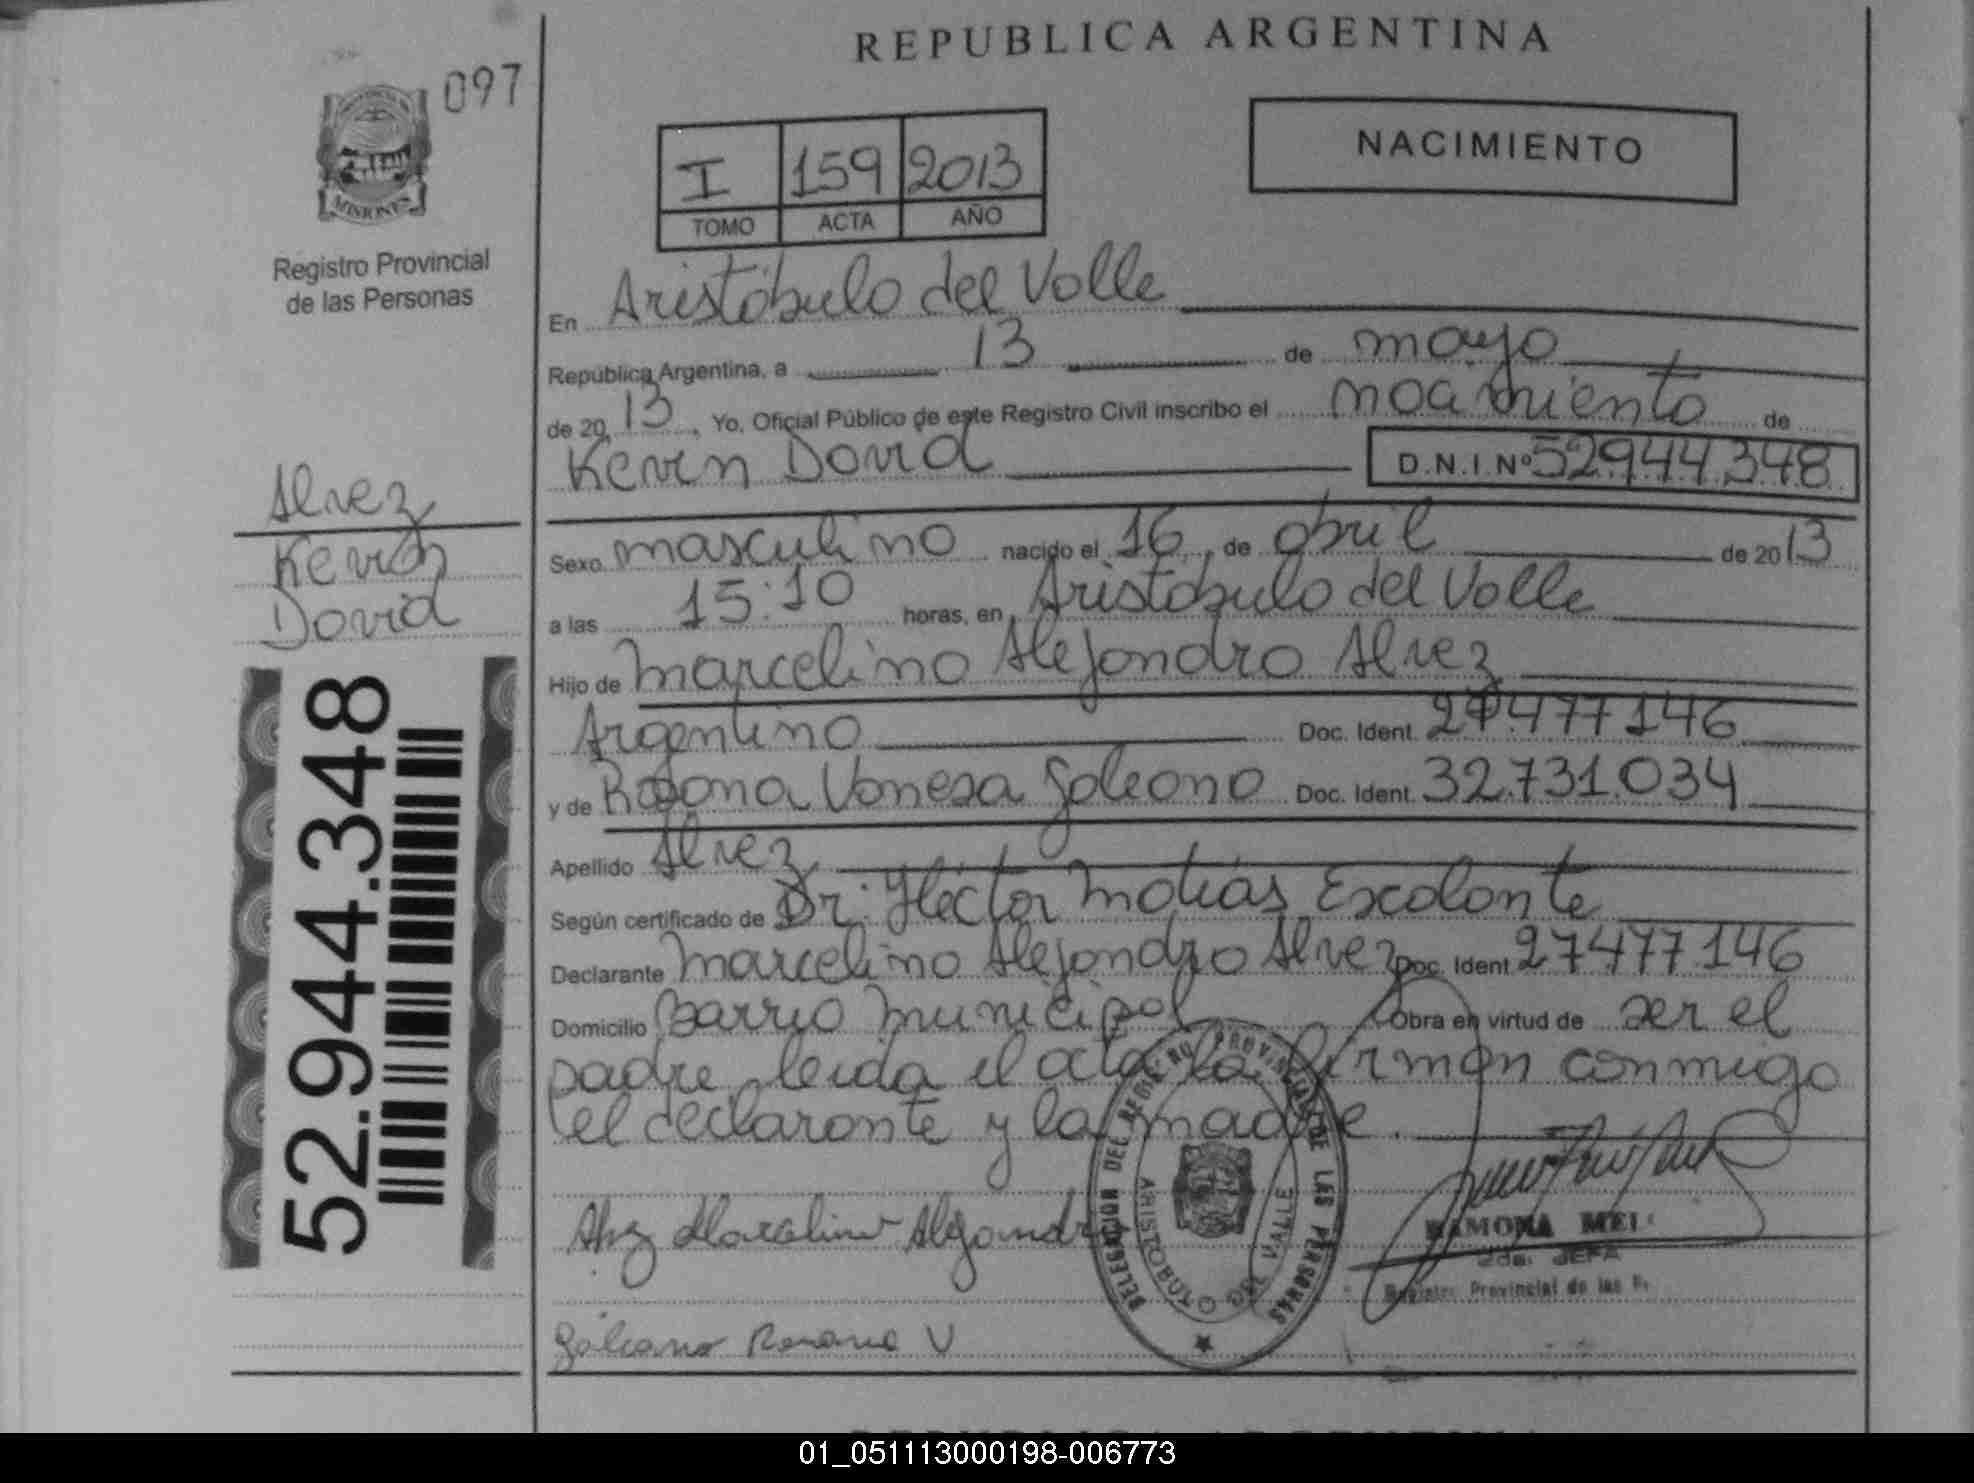 REPUBLICA ARGENTINA
097
NACIMIENTO
I 159 2013
TOMO ACTA AÑO
MISIONES
Registro Provincial
de las Personas
En Aristóbulo del Valle
República Argentina, a 13 de mayo
de 20 13, Yo, Oficial Público de este Registro Civil inscribo el nacimiento de
Kevin David D.N.I. Nº 52944348
Alvez
Kevin
David
52.944.348
Sexo masculino nacido el 16, de abril de 2013
a las 15:10 horas, en Aristobulo del Valle
Hijo de Marcelino Alejandro Alvez
Argentino Doc. Ident. 27477146
y de Vanesa Galeano Doc. Ident. 32.731.034
Apellido Alvez
Según certificado de Dr. Héctor Matías Escalante
Declarante Marcelino Alejandro Alvez Doc. Ident 27477146
Domicilio Barrio Municipal Obra en virtud de ser el
padre leida el acta la firman conmigo
el declarante y la madre.
DELEGACION DEL REGISTRO PROVINCIAL DE LAS PERSONAS
ARISTOBULO DEL VALLE
Alvez Marcelino Alejandro
RAMONA
2da. JEFA
Registro Provincial de las
Galeano V
01_051113000198-006773